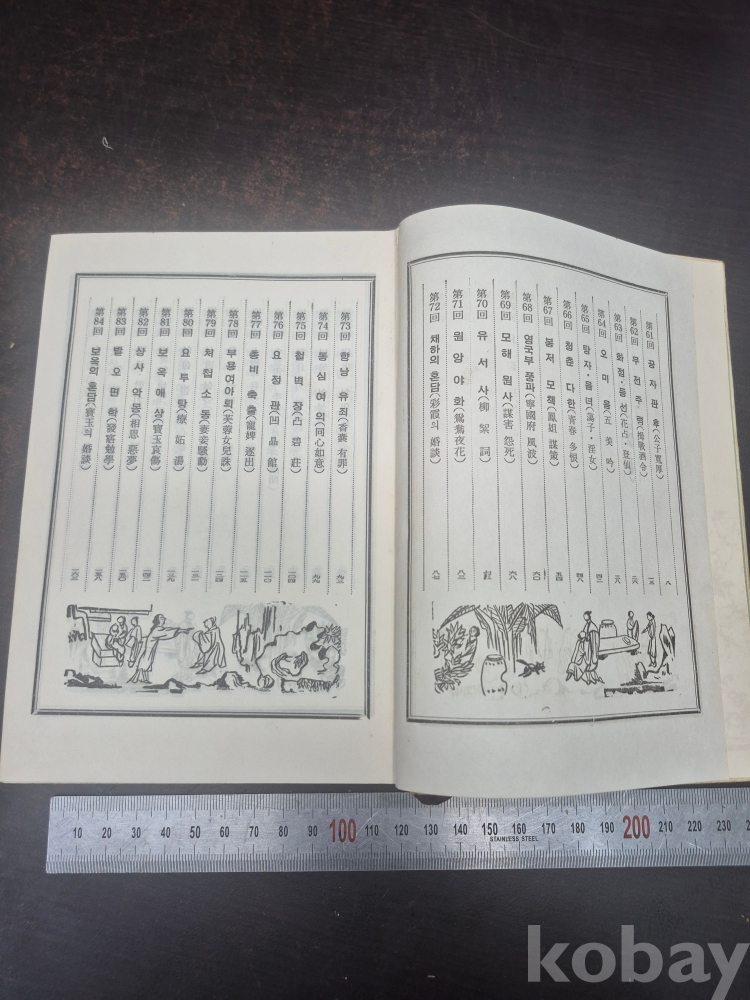 第61回 공자관후(公子寬厚)
第62回 무전주령(拇戰酒令)
第63回 화점·음선(花占·登仙)
第64回 오미음(五美吟)
第65回 탕자·음녀(蕩子·淫女)
第66回 청춘 다한(靑春 多恨)
第67回 봉저 모책(鳳姐 謀策)
第68回 영국부 풍파(寧國府 風波)
第69回 모해 원사(謀害 怨死)
第70回 유서사(柳絮詞)
第71回 원앙야화(鴛鴦夜花)
第72回 채하의 혼담(彩霞의 婚談)
第73回 향낭 유죄(香囊 有罪)
第74回 동심여의(同心如意)
第75回 철벽장(凸碧莊)
第76回 요정관(凹晶館)
第77回 총비 축출(寵婢 逐出)
第78回 부용여아뢰(芙蓉女兒誄)
第79回 처첩소동(妻妾騷動)
第80回 요투탕(療妬湯)
第81回 보옥애상(寶玉哀傷)
第82回 상사 악몽(相思 惡夢)
第83回 발오면학(發寤勉學)
第84回 보옥의 혼담(寶玉의 婚談)
10 20 30 40 50 60 70 80 90 100 110 120 130 140 150 160 170 180 190 200 210 220 230
STAINLESS STEEL
kobay